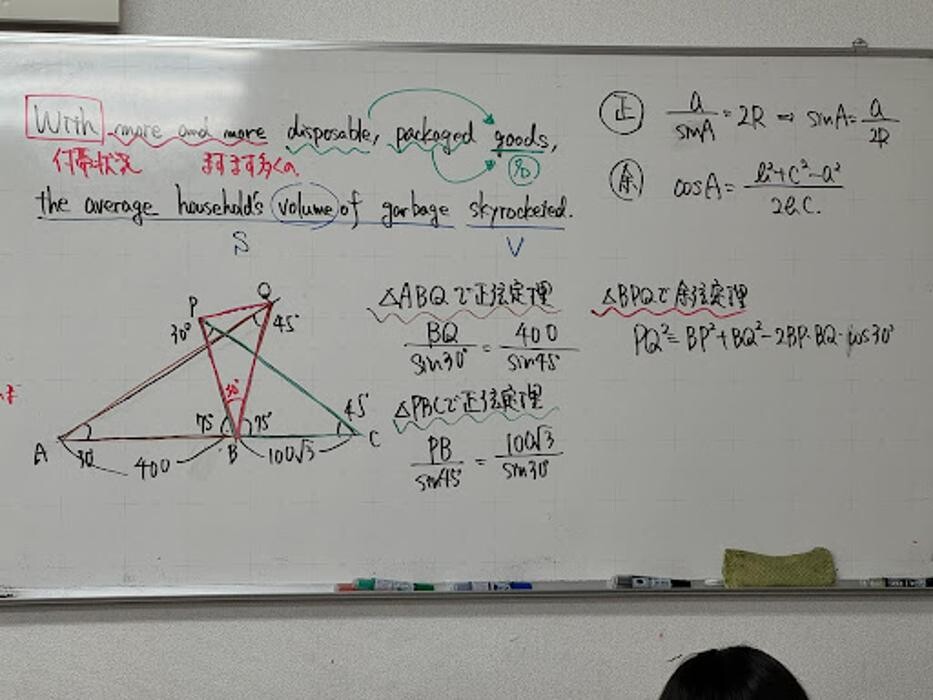 With more and more disposable, packaged goods,
付帯状況 ますます多くの 名
the average household's volume of garbage skyrocketed.
S V
正 a/sinA = 2R → sinA = a/2R
余 cosA = b²+c²-a²/2bc.
P Q
30° 45°
30°
75° 75° 45°
A 30° 400 B 100√3 C
△ABQで正弦定理
BQ/sin30° = 400/sin45°
△PBCで正弦定理
PB/sin45° = 100√3/sin30°
△BPQで余弦定理
PQ² = BP²+BQ²-2BP·BQ·cos30°